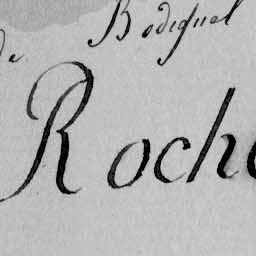 de Bodiguel
Roche